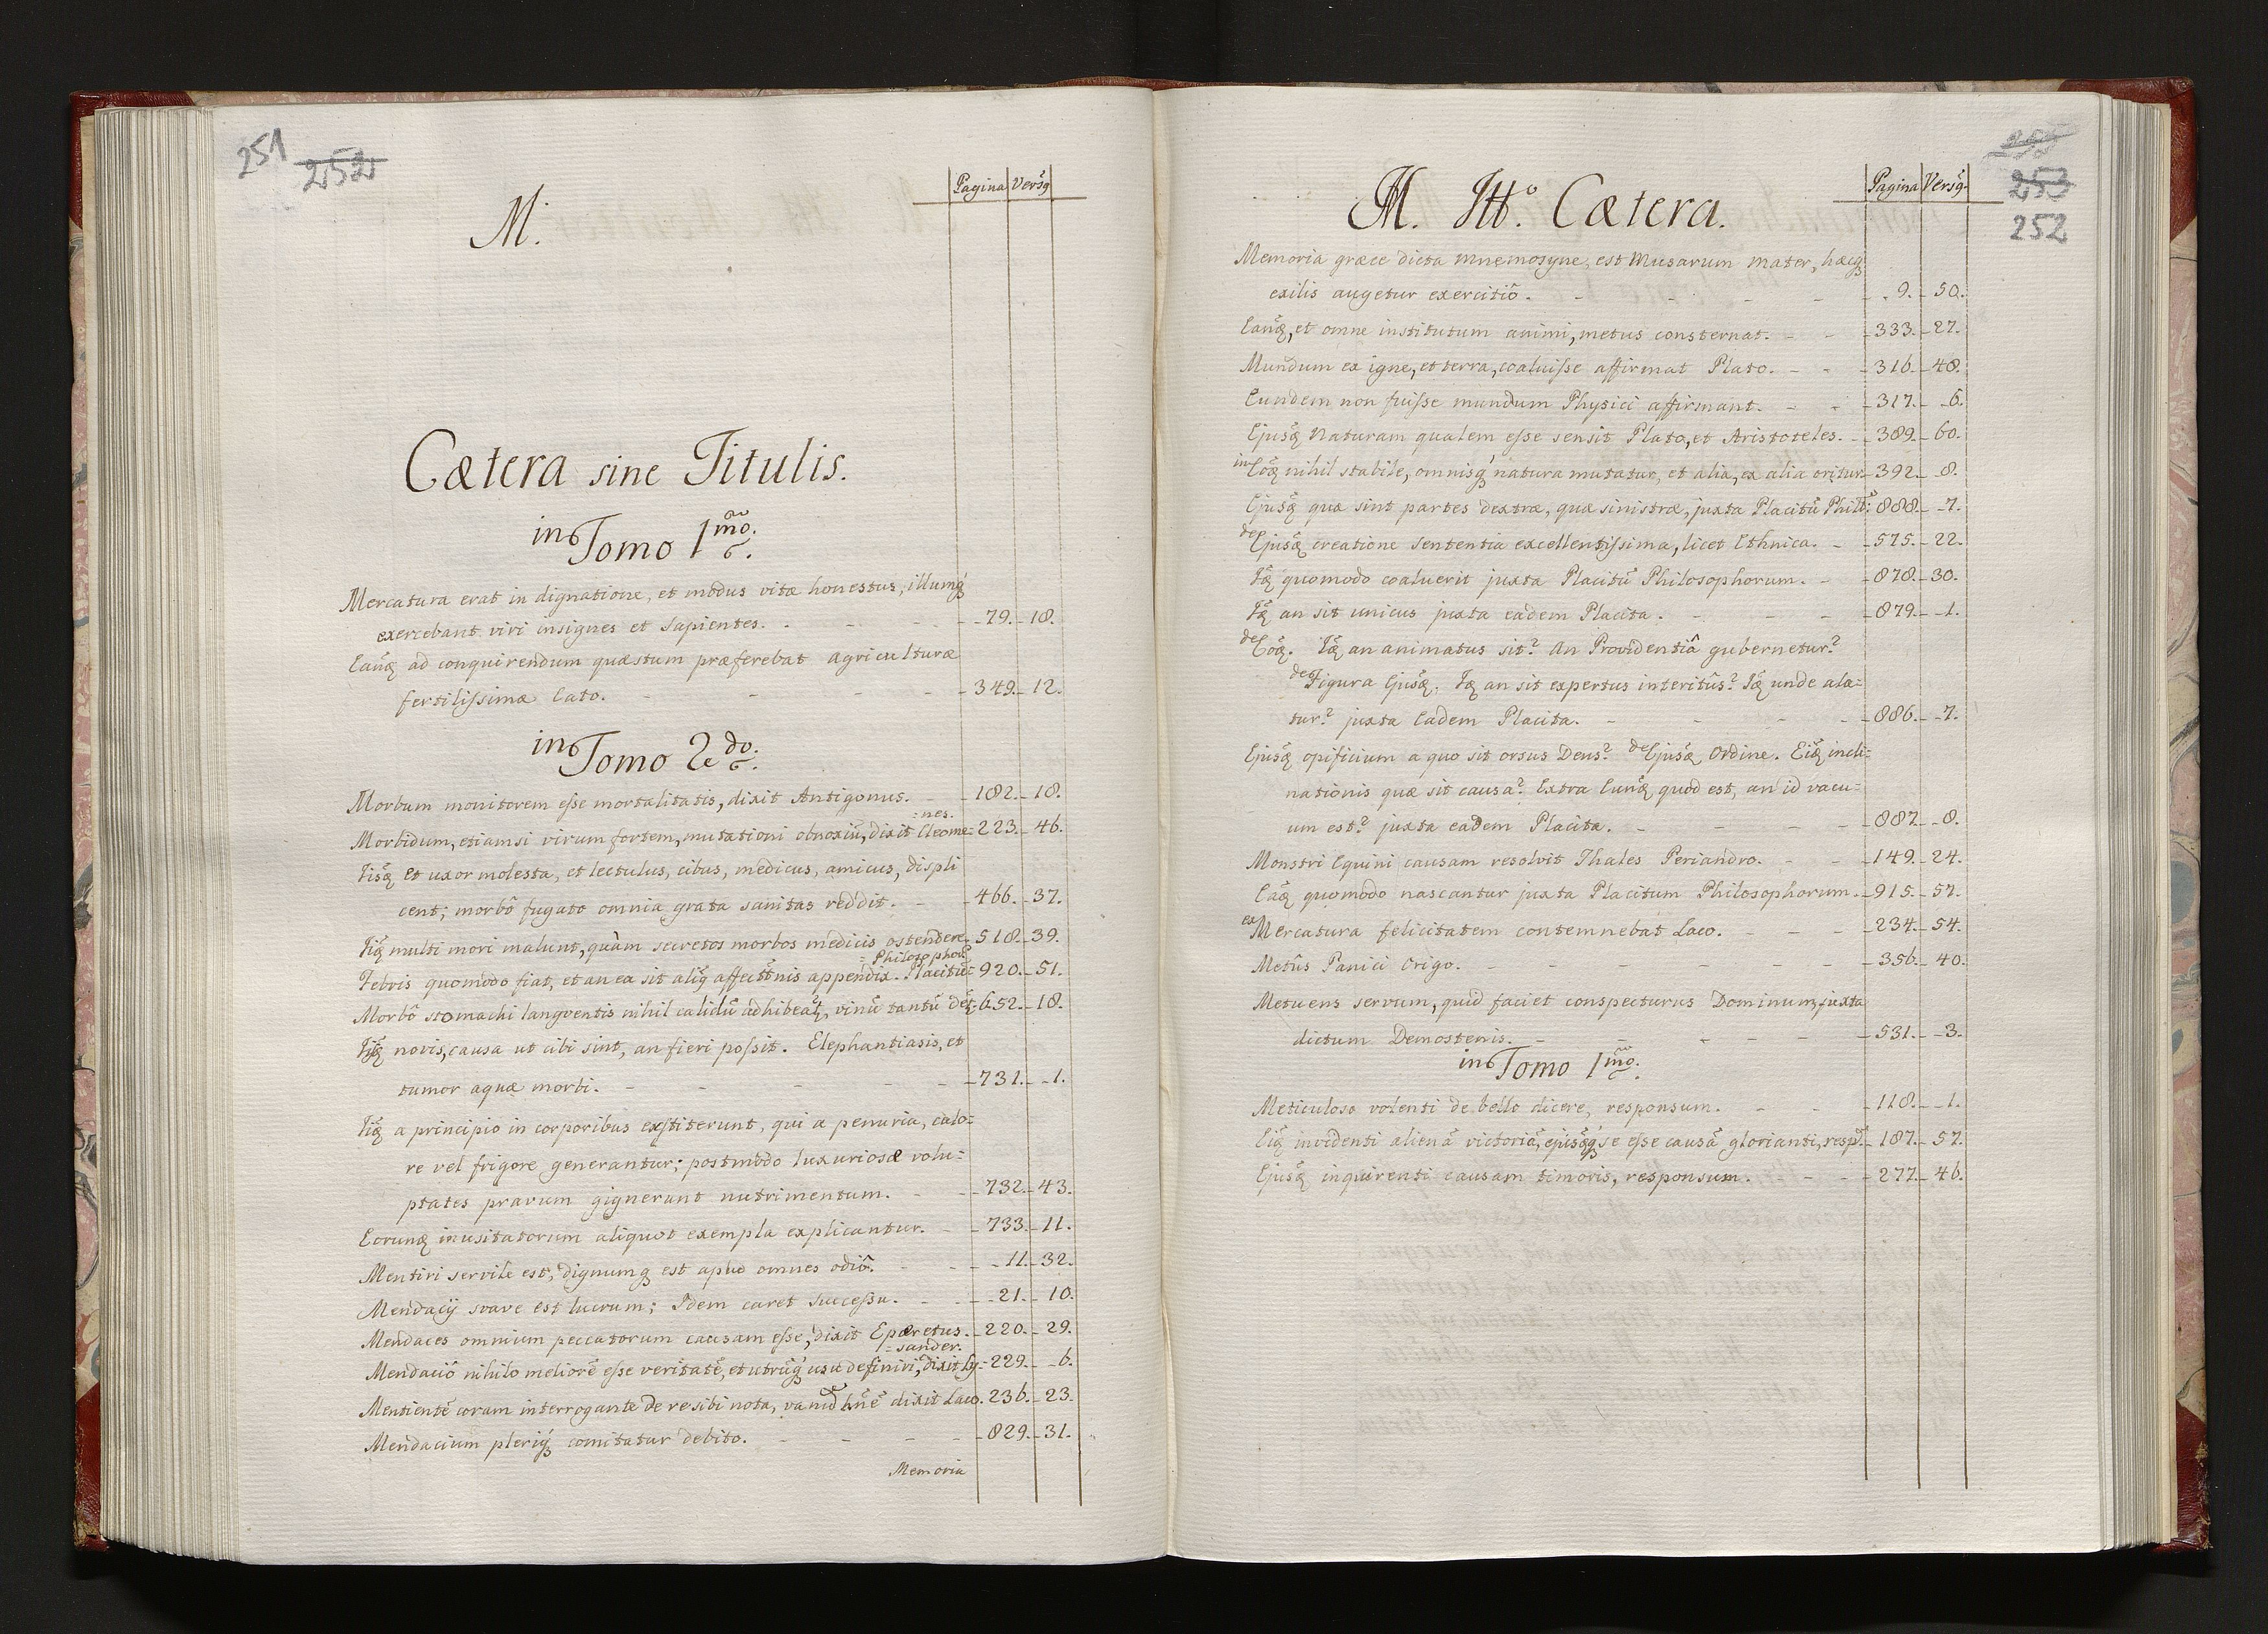 251 252
Pagina Versq
M.
Cætera sine Titulis.
in Tomo 1mo.
Mercatura erat in dignatione, et modus vitæ honestus, illumq
exercebant viri insignes et Sapientes. - 79. - 18.
Eanq ad conquirendum quæstum præferebat agriculturæ
fertilissimæ Cato. - 349. - 12.
in Tomo 2do.
Morbum monitorem esse mortalitatis, dixit Antigonus. - 182. - 18.
=nes.
Morbidum, etiamsi virum fortem, mutationi obnoxiū, dixit Cleome= 223. - 46.
Iisq et uxor molesta, et lectulus, cibus, medicus, amicus, displi
cent; morbô fugato omnia grata sanitas reddit. - 466. - 37.
Iiq multi mori malunt, quàm secretos morbos medicis ostendere. 518. - 39.
=Philosophoꝝ
Febris quomodo fiat, et an ea sit aliq affectûnis appendix. Placitū= 920. - 51.
Morbô stomachi langventis nihil calidū adhibeatꝛ, vinū tantū detꝛ - 652. - 18.
Iiq novis, causa ut cibi sint, an fieri possit. Elephantiasis, et
tumor aquæ morbi. - 731. - 1.
Iiq a principio in corporibus exstiterunt, qui a penuria, calo=
re vel frigore generantur; postmodo luxuriosæ volu=
ptates pravum gignerunt nutrimentum. - 732. - 43.
Eorunq inusitatorum aliquot exempla explicantur. - 733. - 11.
Mentiri servile est, dignumq est apud omnes odiô. - 11. - 32.
Mendacij svave est lucrum; Idem caret successu. - 21. - 10.
Mendaces omnium peccatorum causam esse, dixit Epæretus. - 220. - 29.
=sander.
Mendaciô nihilo meliorē esse veritatē, et utrūq usu definiri, dixit Ly= 229. - 6.
Mentientē coram interrogante de re sibi nota, vanū hnē dixit Laco. 236. - 23.
Mendacium pleriq comitatur debito. - 829. - 31.
Memoria
253
252
Pagina Versq.
M. Itto. Cætera.
Memoria græce dicta mnemosyne, est Musarum Mater, hæcq
exilis augetur exercitiô. - 9. - 50.
Eanq, et omne institutum animi, metus consternat. - 333. - 27.
Mundum ex igne, et terra, coaluisse affirmat Plato. - 316. - 48.
Eundem non fuisse mundum Physici affirmant. - 317. - 6.
Ejusq Naturam qualem esse sensit Plato, et Aristoteles. - 389. - 60.
in Eoq nihil stabile, omnisq natura mutatur, et alia, ex alia oritur - 392. - 8.
Ejusq quæ sint partes dextræ, quæ sinistræ, juxta Placitū Philo: 888. - 7.
de Ejusq creatione sententia excellentissima, licet Ethnica. - 575. - 22.
Iq quomodo coaluerit juxta Placitū Philosophorum. - 878. - 30.
Iq an sit unicus juxta eadem Placita. - 879. - 1.
de Eoq. Iq an animatus sit? An Providentiâ gubernetur?
de Figura Ejusq. Iq an sit expertus interitûs? Iq unde ala=
tur? juxta Eadem Placita. - 886. - 7.
Ejusq opificium a quo sit orsus Deus? de Ejusq Ordine. Eiq incli=
nationis quæ sit causa? Extra Eunq quod est, an id vacu=
um est? juxta eadem Placita. - 887. - 8.
Monstri Equini causam resolvit Thales Periandro. - 149. - 24.
Eaq quomodo nascantur juxta Placitum Philosophorum. - 915. - 57.
ex Mercatura felicitatem contemnebat Laco. - 234. - 54.
Metûs Panici Origo. - 356. - 40.
Metuens servum, quid faciet conspecturus Dominum, juxta
dictum Demostenis. - 531. - 3.
in Tomo 1mo.
Meticuloso volenti de bello dicere, responsum. - 118. - 1.
Eiq invidenti alienâ victoriâ, ejusqq se esse causâ glorianti, resp. - 187. - 57.
Ejusq inquirenti causam timoris, responsum. - 277. - 46.